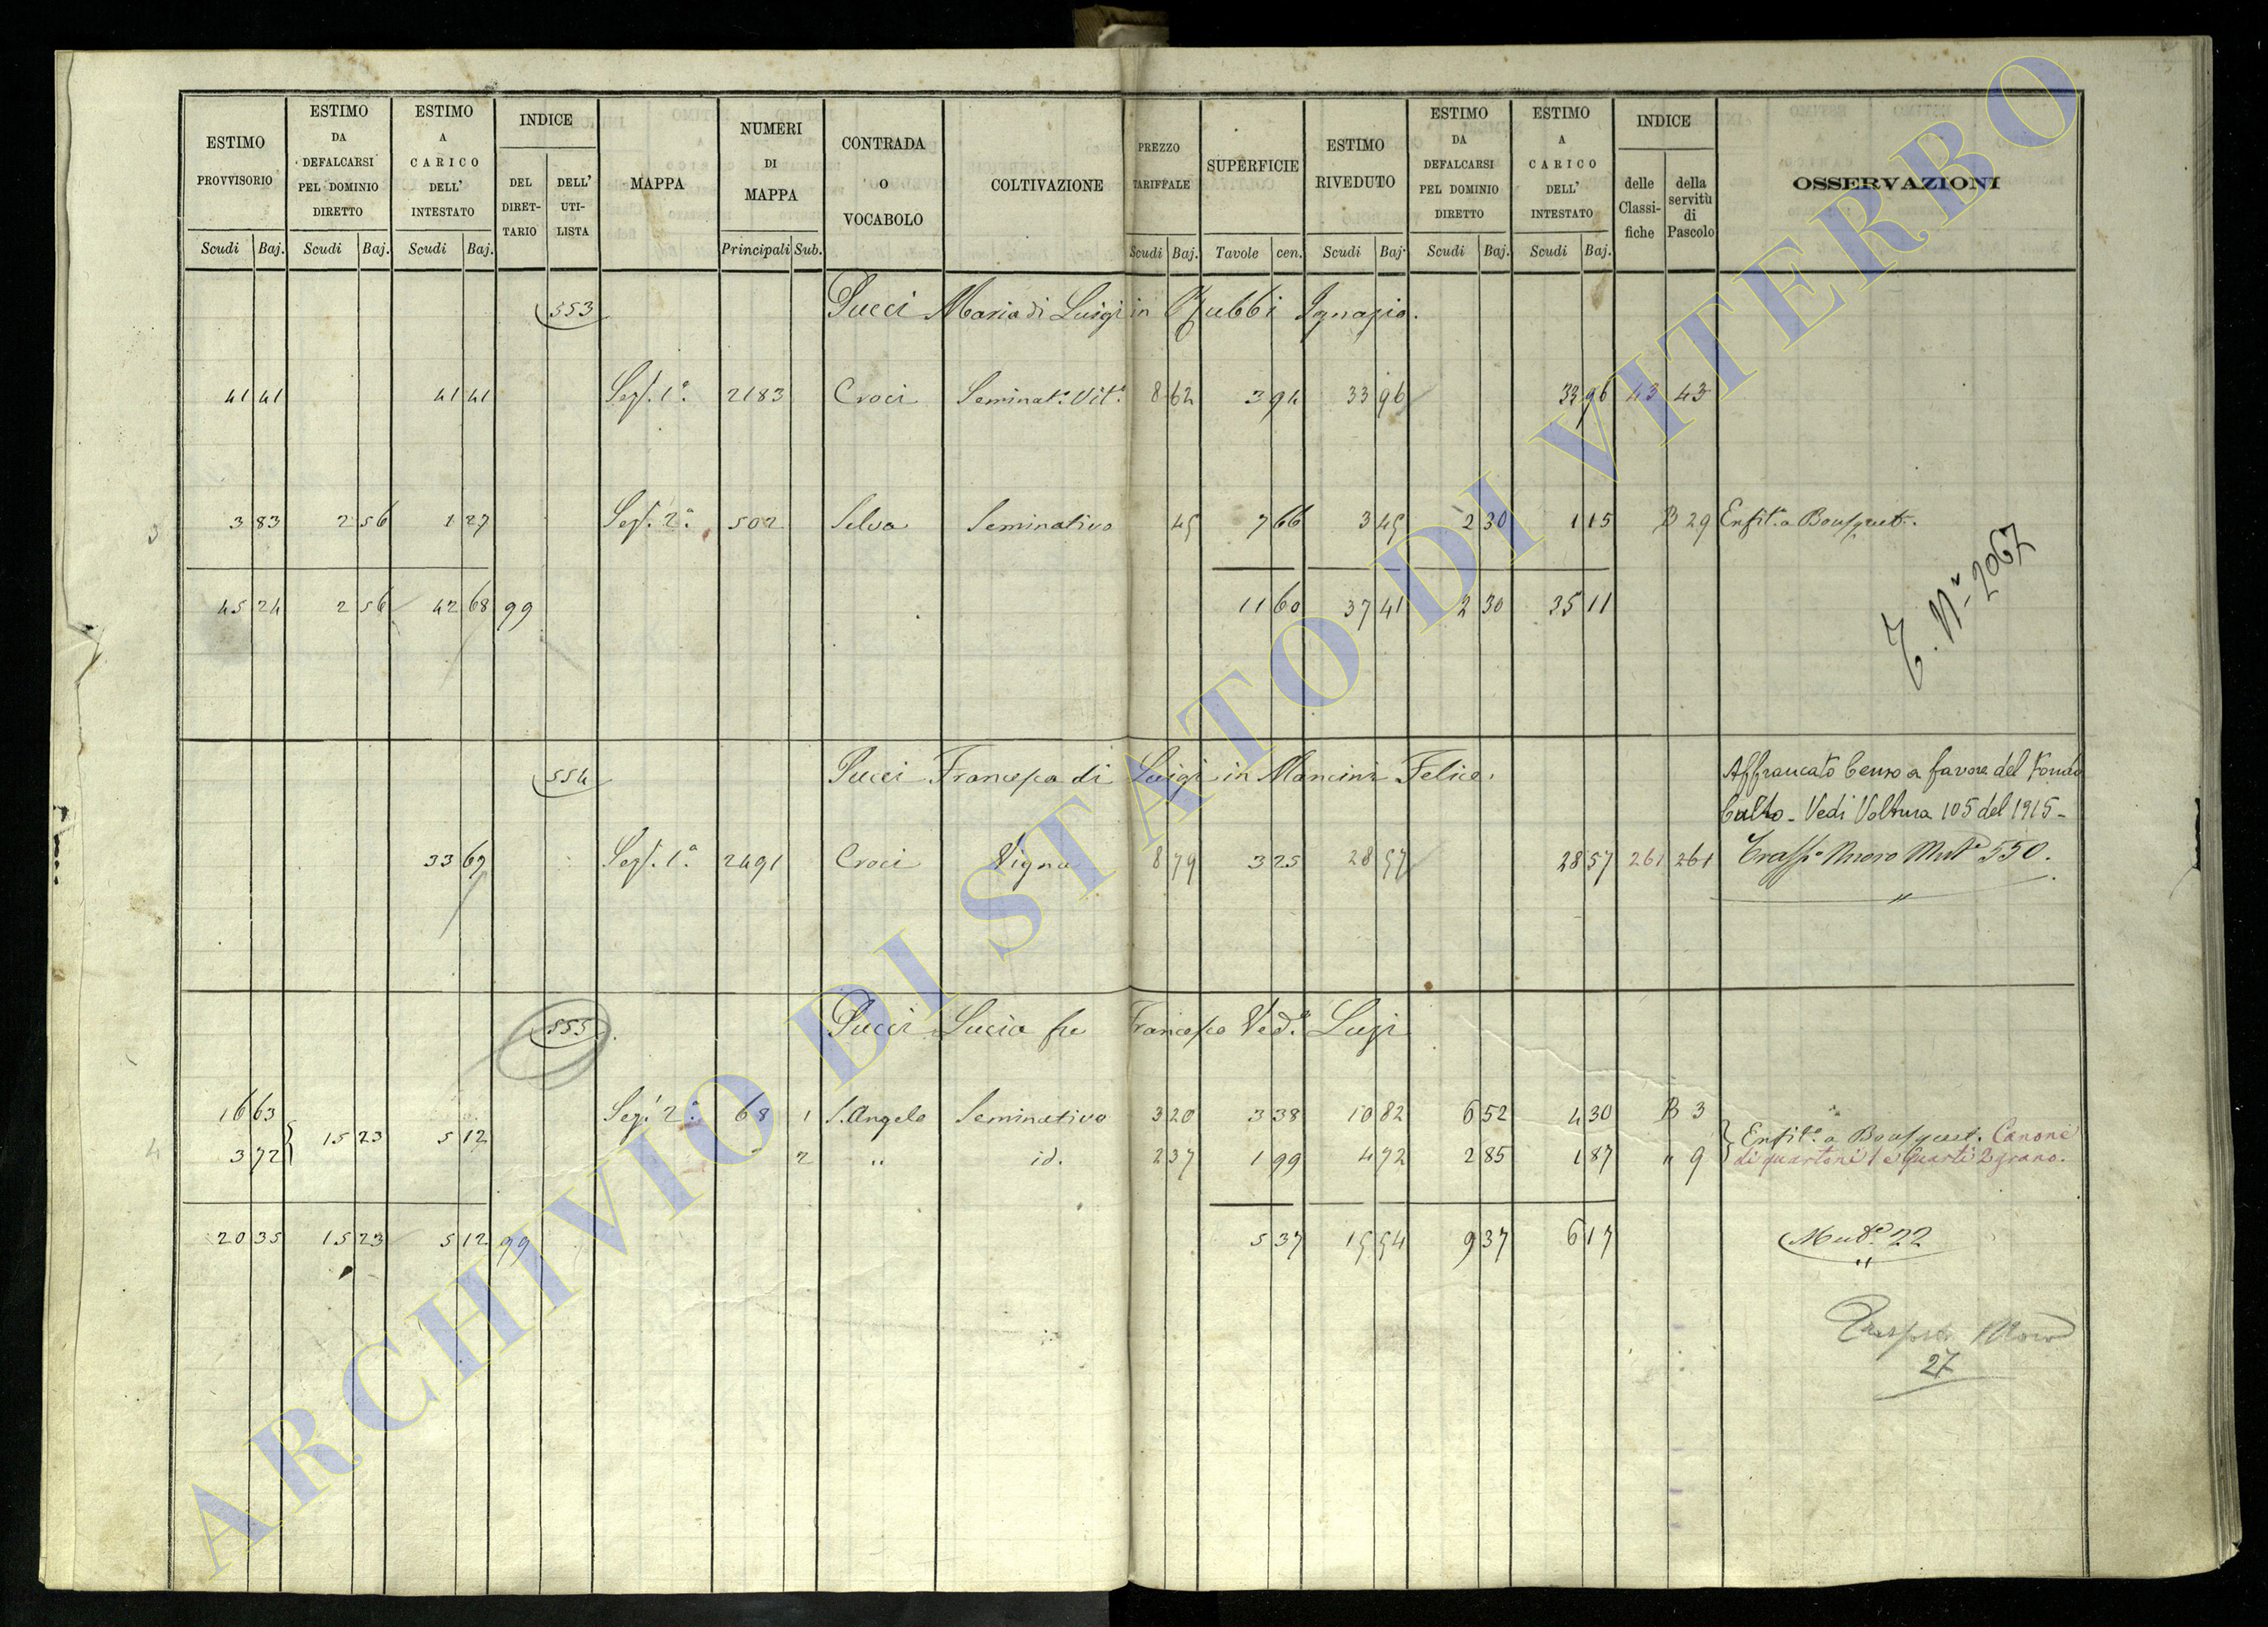 ESTIMO PROVVISORIO | ESTIMO DA DEFALCARSI PEL DOMINIO DIRETTO | ESTIMO A CARICO DELL' INTESTATO | INDICE | MAPPA | NUMERI DI MAPPA | CONTRADA O VOCABOLO | COLTIVAZIONE | PREZZO TARIFFALE | SUPERFICIE | ESTIMO RIVEDUTO | ESTIMO DA DEFALCARSI PEL DOMINIO DIRETTO | ESTIMO A CARICO DELL' INTESTATO | INDICE | OSSERVAZIONI
DEL DIRET-TARIO | DELL' UTI-LISTA | delle Classi-fiche | della servitù di Pascolo
Scudi Baj. Scudi Baj. Scudi Baj. Principali Sub. Scudi Baj. Tavole cen. Scudi Baj. Scudi Baj. Scudi Baj.
553 Pucci Maria di Luigi in Ignazio.
41 41 41 41 Sez. 1ª 2183 Croci Seminat. Vit. 8 62 3 94 33 96 33 96 43 43
3 83 2 56 1 27 Sez. 2ª 502 Selva Seminativo 45 7 66 3 45 2 30 1 15 B 29 Enfit. a Bousquet.
45 24 2 56 42 68 99 11 60 37 41 2 30 35 11
Nº 2067
554 Pucci Francesca di Luigi in Mancini Felice.
Affrancato Censo a favore del Fondo
Culto - Vedi Voltura 105 del 1915 -
33 67 Sez. 1ª 2491 Croci Vigna 8 79 3 25 28 57 28 57 261 261 Nuovo 550.
555 Pucci Lucia fu Francesco Ved. Luigi
16 63 Sez. 2ª 68 1 S. Angelo Seminativo 3 20 3 38 10 82 6 52 4 30 B 3
15 23 5 12 Enfit. a Bousquet. Canone
3 72 2 " id. 2 37 1 99 4 72 2 85 1 87 " 9 di quartoni 1 e quarti 2 grano.
20 35 15 23 5 12 99 5 37 15 54 9 37 6 17 22
27
3
4
ARCHIVIO DI STATO DI VITERBO